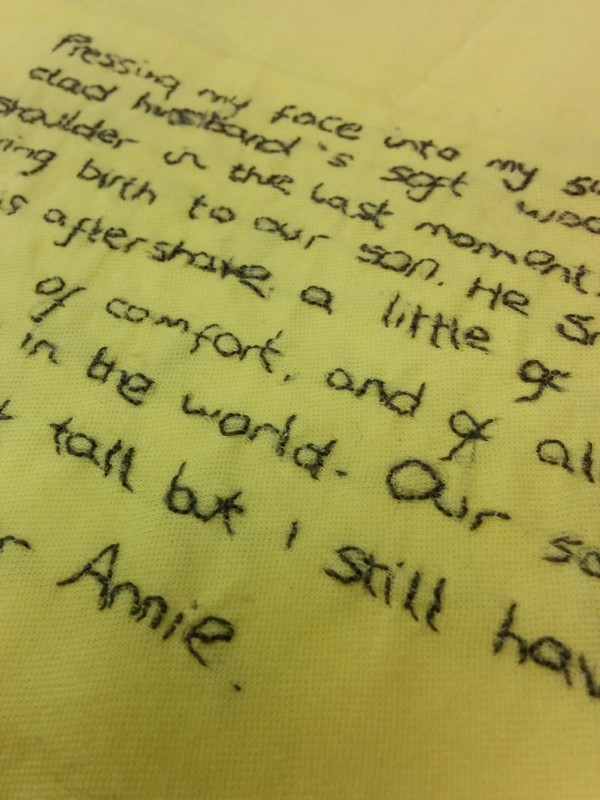 Pressing my face into my
clad husband's soft
shoulder in the last moment
birth to our son. He
aftershave, a little of
of comfort, and of
in the world. Our
tall but i still
Annie.